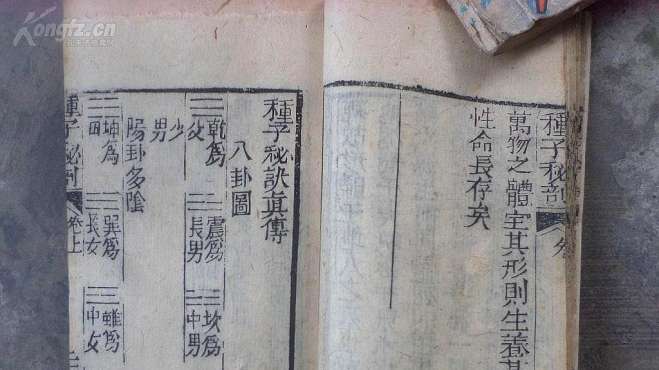 Kongfz.cn
種子秘剖
萬物之體全其形則生養其
性命長存矣
種子秘訣真傳
八卦圖
乾為父
震為長男
坎為中男
少男
陽卦多陰
坤為
巽為長女
離為中女
種子秘剖
卷上